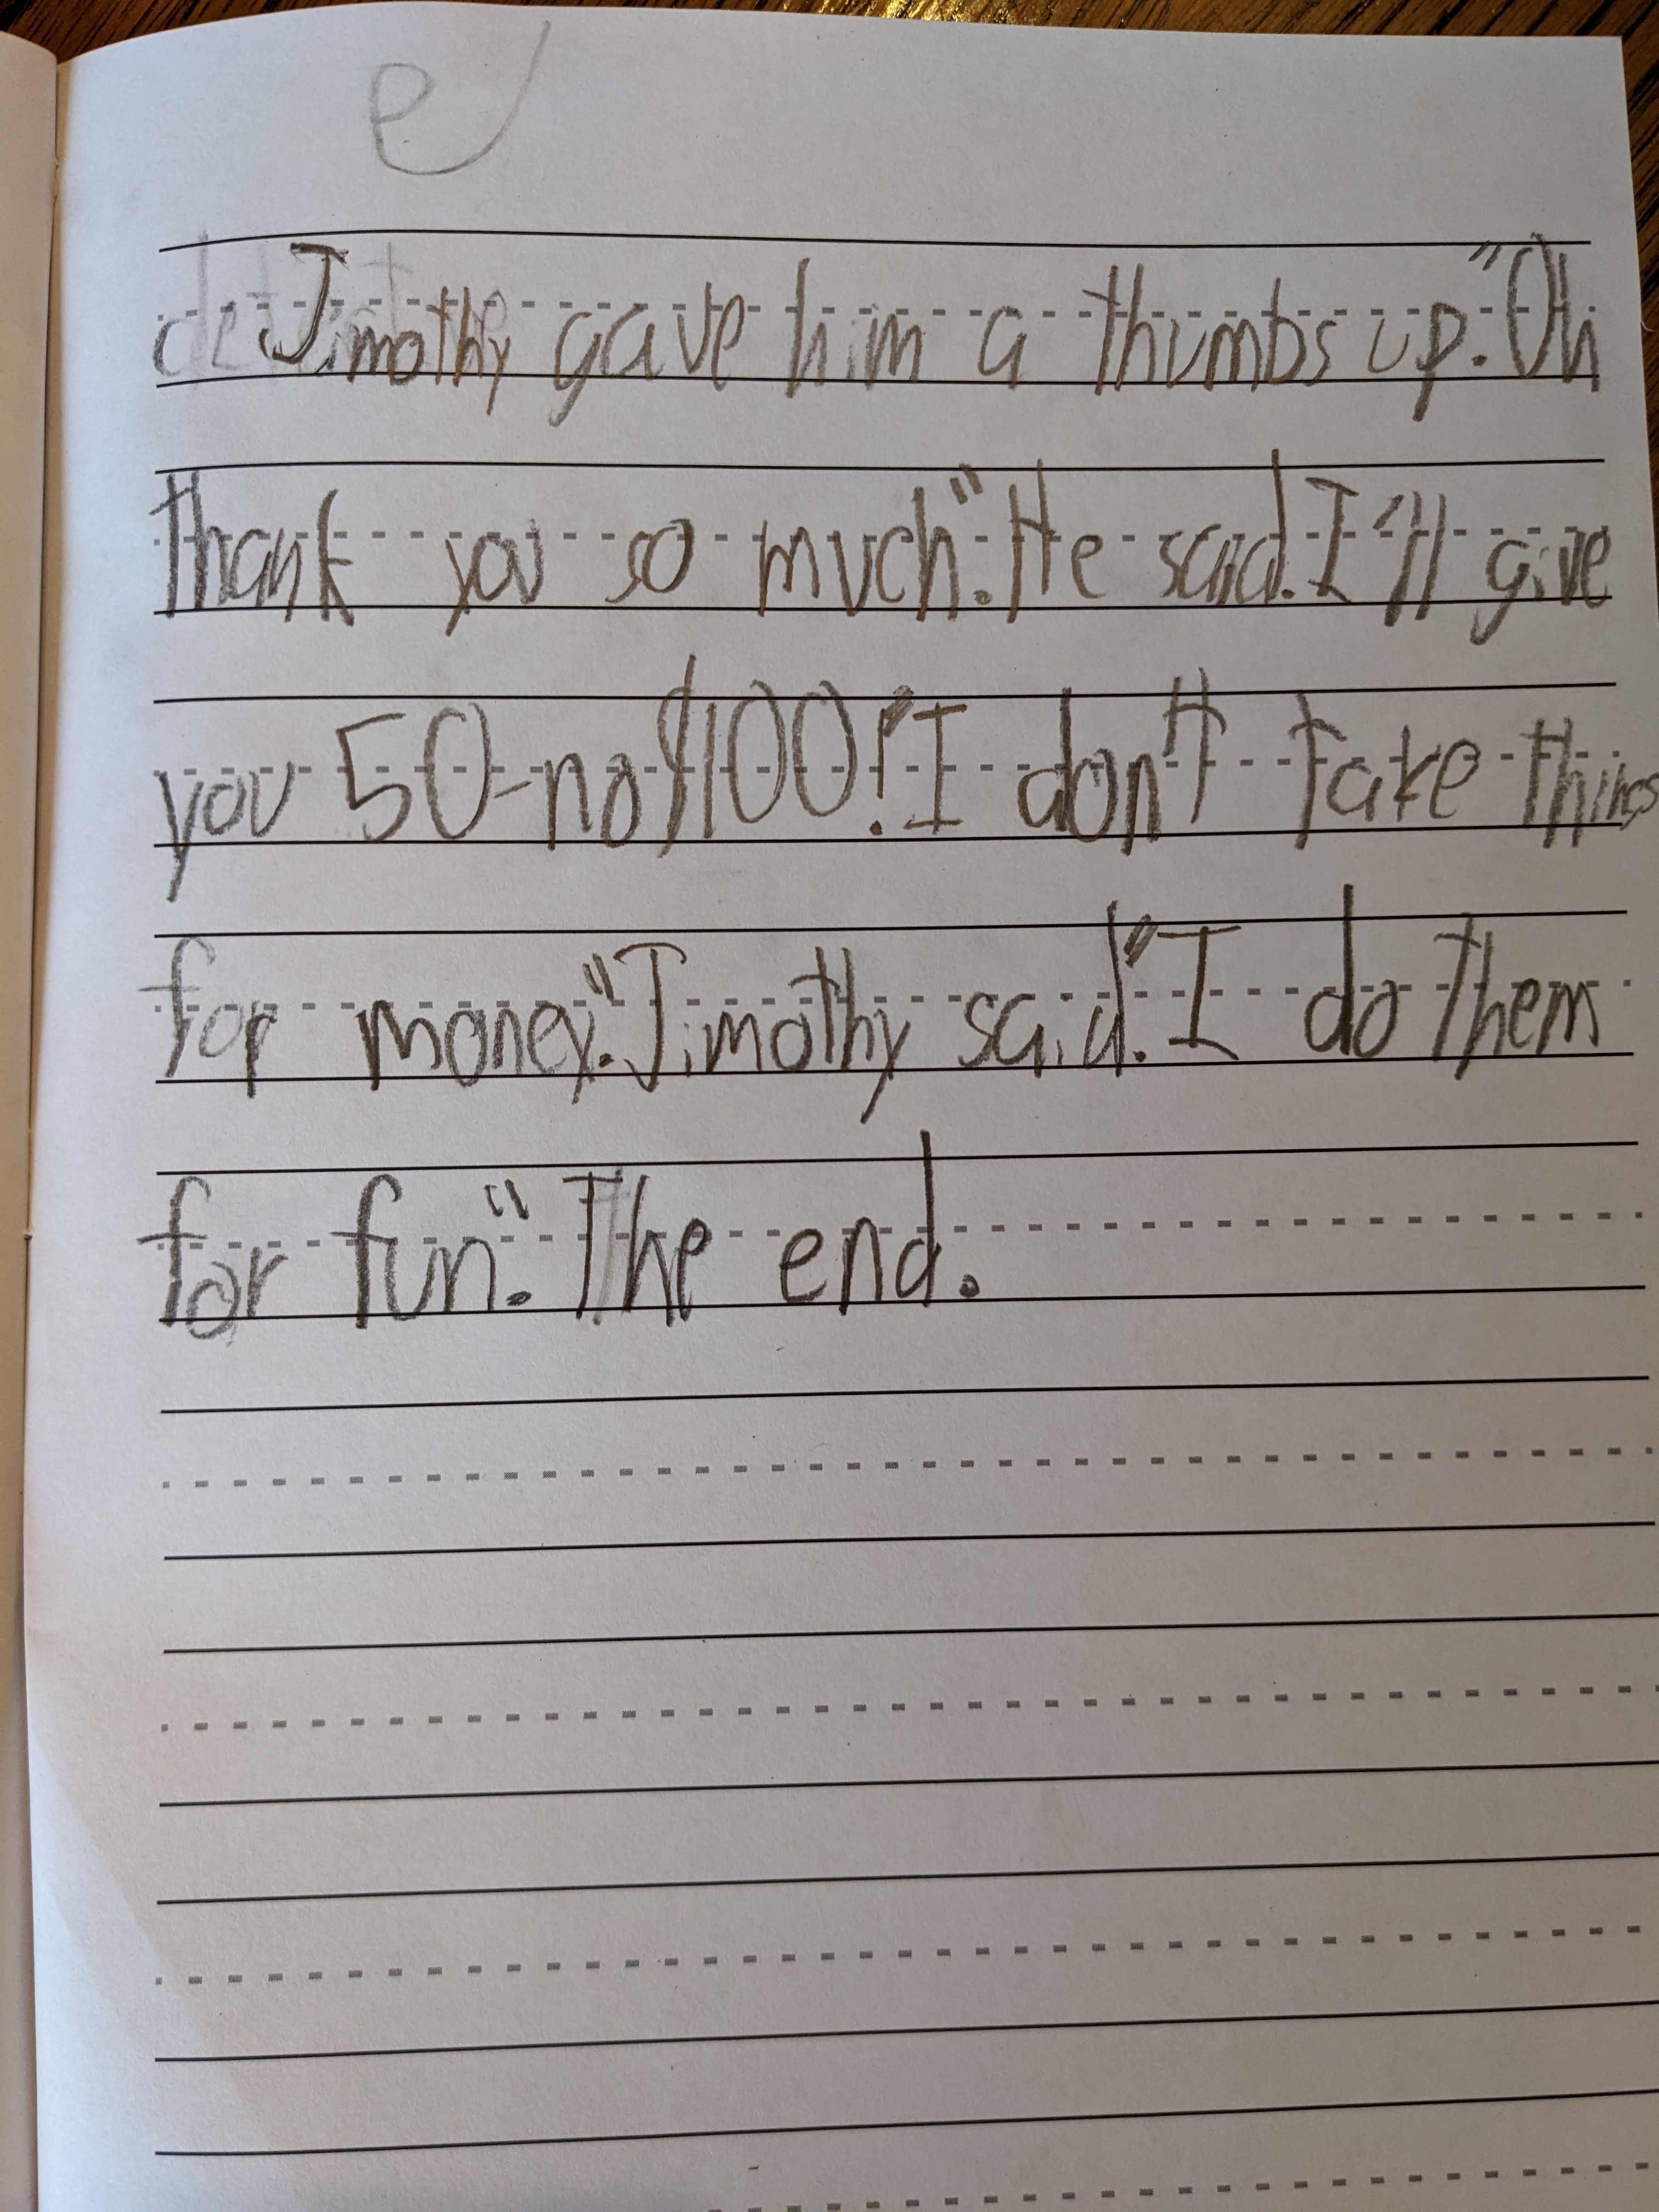 e
Timothy gave him a thumbs up. "Oh
thank you so much". He said. I'll give
you 50-no $100!" I don't take things
for money." Timothy said." I do them
for fun". The end.